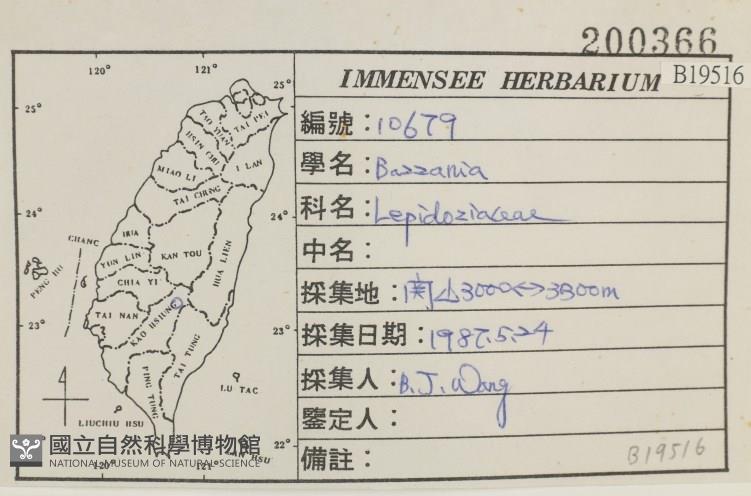 200366
B19516
IMMENSEE HERBARIUM
編號：10679
學名：Bazzania
科名：Lepidoziaceae
中名：
採集地：関山3000<->3300m
採集日期：1987.5.24
採集人：B.J. Wang
鑒定人：
備註：
B19516
120° 121°
25° 25°
24° 24°
23° 23°
22°
120° 121°
TAO YUAN
TAI PEI
HSIN CHU
I LAN
MIAO LI
TAI CHUNG
HUA
CHANG
YUN LIN
KAN TOU
HUA LIEN
PENG HU
CHIA YI
TAI NAN
KAO HSIUNG
TAI TUNG
PING TUNG
LU TAO
LIUCHIU HSU
AN HSU
國立自然科學博物館
NATIONAL MUSEUM OF NATURAL SCIENCE